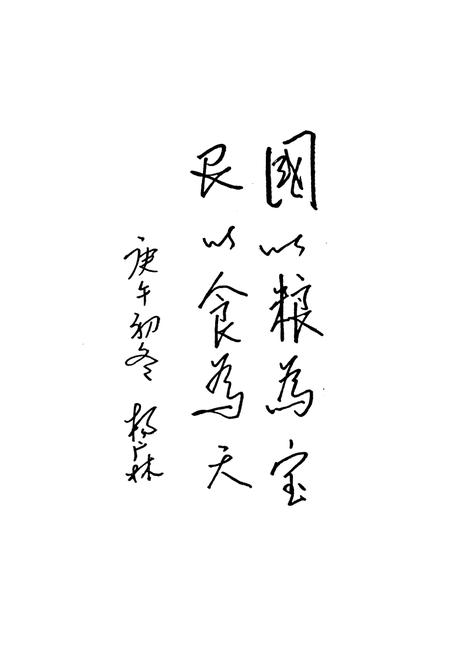 國以粮為宝
民以食為天
庚午初冬 杨广林